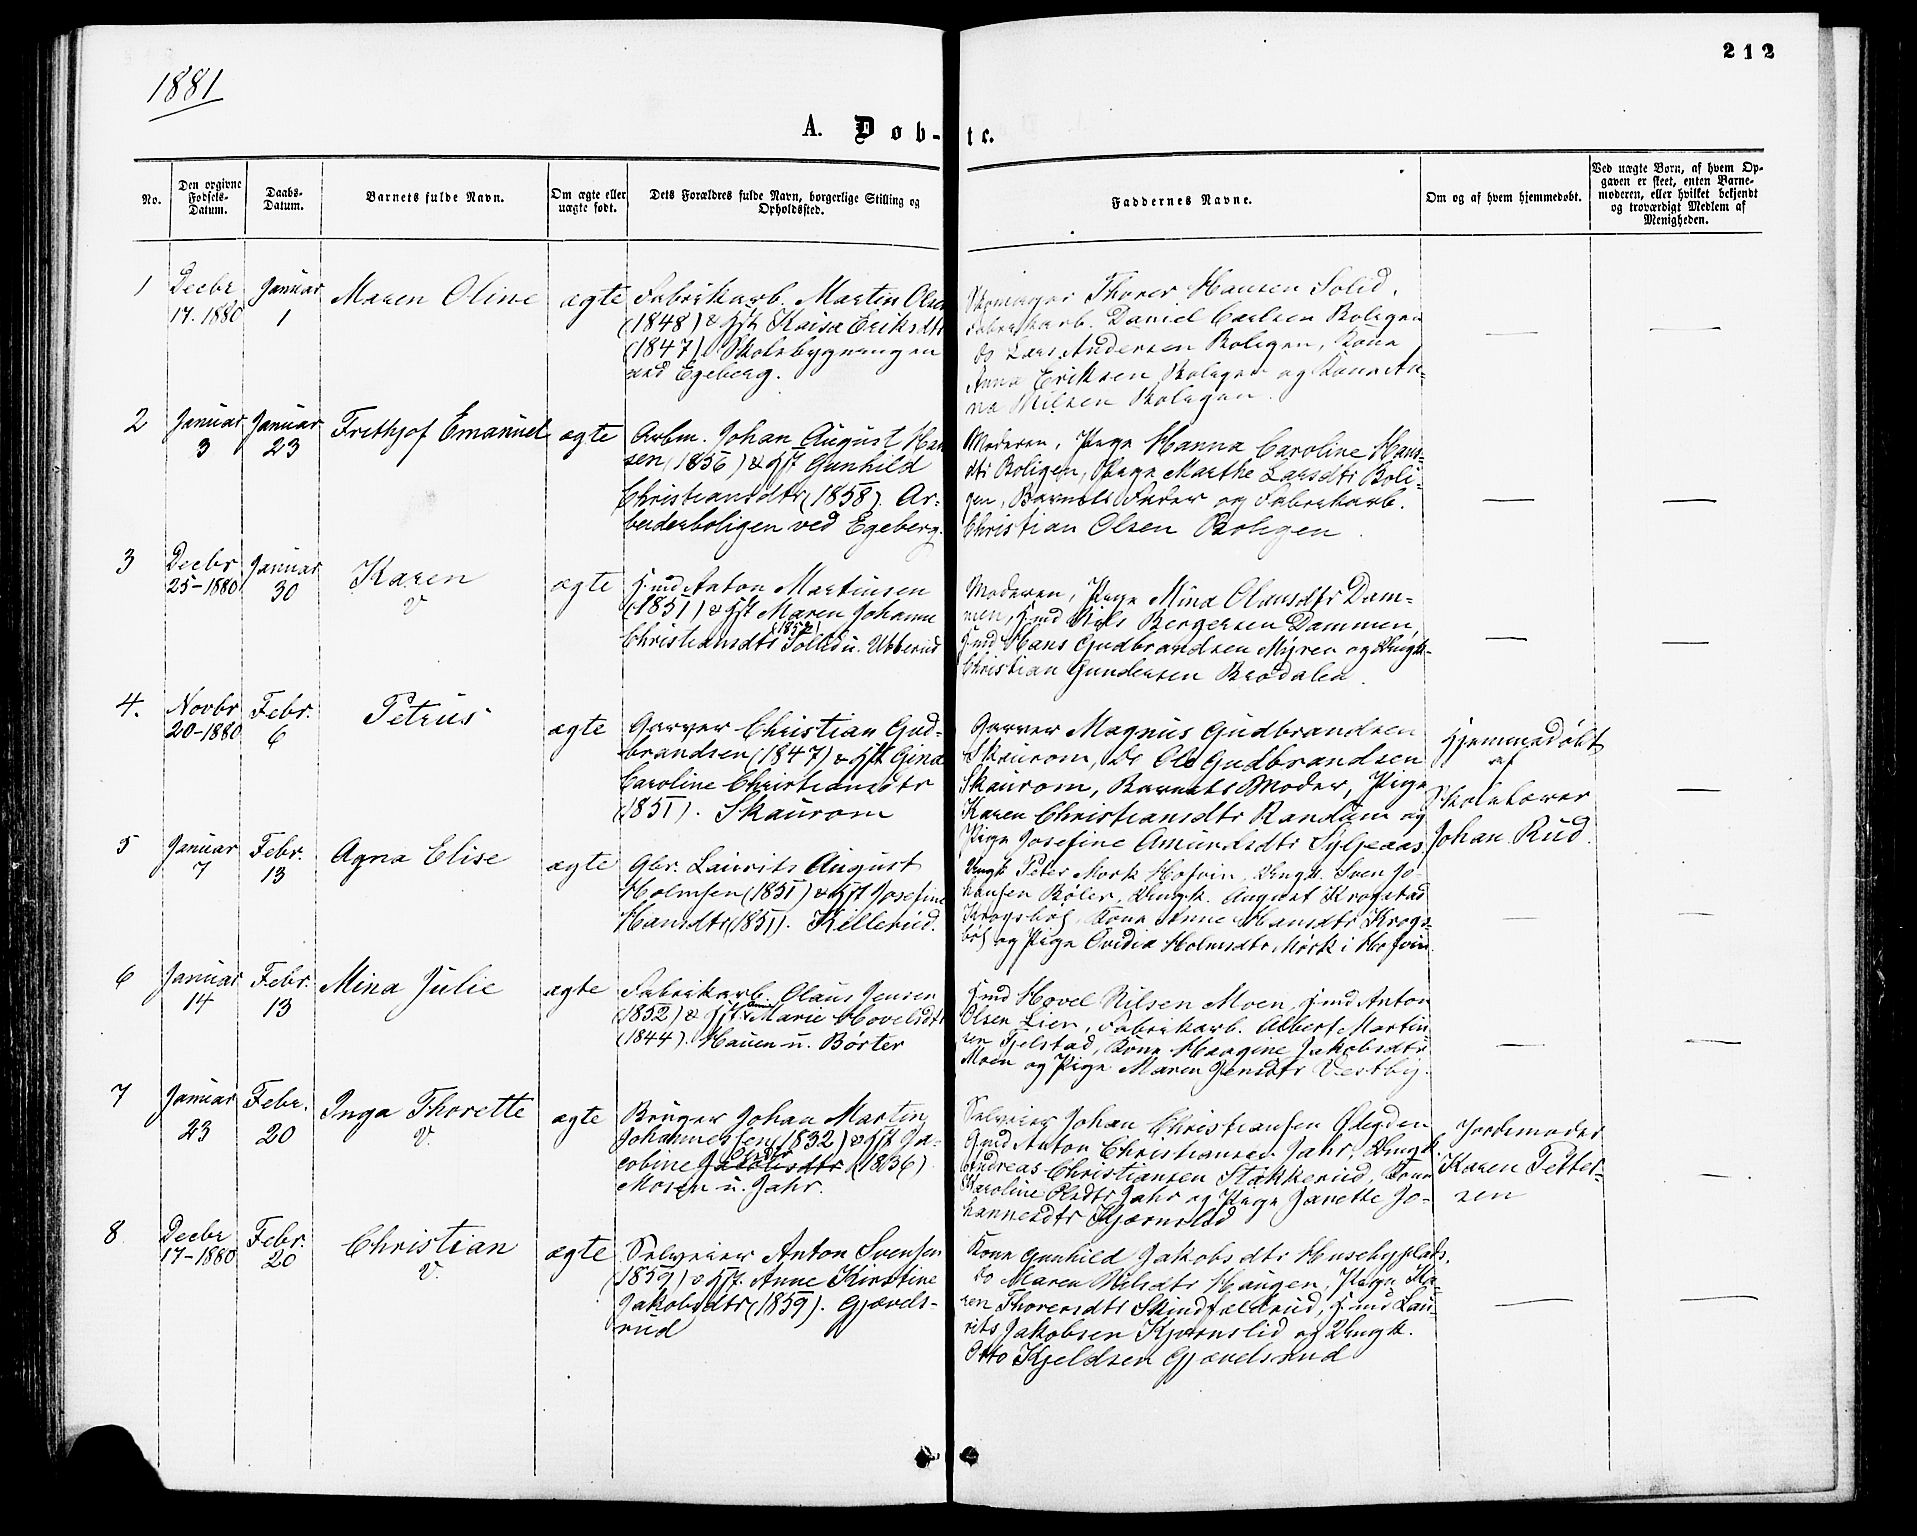 212
1881
A. Døb-
te.
No.
Den opgivne
Fødsels-
Datum.
Daabs-
Datum.
Barnets fulde Navn.
Om ægte eller
uægte født.
Dets Forældres fulde Navn, borgerlige Stilling og
Opholdssted.
Faddernes Navne.
Om og af hvem hjemmedøbt.
Ved uægte Børn, af hvem Op-
gaven er skeet, enten Barne-
moderen, eller hvilket bekjendt
og troværdigt Medlem af
Menigheden.
1
Decbr
17. 1880
Januar
1
Maren Oline
ægte
Fabrikarb. Martin Olsen
(1848) & Hst Kaisa Eriksdtr
(1847) Skolebygningen
ved Egeberg.
Skomager Thorer Hansen Solid,
Fabrikarb. Daniel Carlsen Boligen
do Lars Andersen Boligen, Kone
Anna Eriksen Boligen og Kone An-
na Nilsen Boligen.
2
Januar
3
Januar
23
Frethjof Emanuel
ægte
Arbm. Johan August Han
sen (1856) & Hst Gunhild
Christiansdtr (1858). Ar-
beiderboligen ved Egeberg.
Moderen, Pige Hanna Caroline Hans-
dtr Boligen, Pige Marthe Larsdtr Boli-
gen, Barnets Fader og Fabrikarb.
Christian Olsen Boligen.
3
Decbr
25-1880
Januar
30
Karen
V
ægte
Hmd Anton Martinsen
(1851) & Hst Maren Johanne
Christiansdtr Sollid u. Ubberud
Moderen, Pige Mina Olausdtr Dam-
men, Hmd Nils Bergersen Dammen,
Hmd Hans Gudbrandsen Myren og Ungk.
Christian Gundersen Brodalen.
4.
Novbr
20-1880
Febr.
6
Petrus
ægte
Garver Christian Gud-
brandsen (1847) & Hst Gina
Caroline Christiansdtr
(1851). Skaurom
Garver Magnus Gudbrandsen
Skaurom, Do Ole Gudbrandsen
Skaurom, Barnets Moder, Pige
Karen Christiansdtr Randum og
Pige Josefine Amundsdtr Syljeaas.
Hjemmedøbt
af
Skolelærer
Johan Rud.
5
Januar
7
Febr.
13
Agna Elise
ægte
Gbr. Laurits August
Holmsen (1851) & Hst Josefine
Hansdtr (1851). Killerud.
Ungk Peter Mork Hofvin, Ungk. Sven Jo-
hansen Bøler, Ungk. August Krogstad
Krogsbøl, Kone Anne Hansdtr Krogs-
bøl og Pige Ovidia Holmsdtr Mørk i Hofvin.
6
Januar
14
Febr.
13
Mina Julie
ægte
Fabrikarb. Olaus Jensen
(1852) & Hst Marie Hovelsdtr
(1844). Hauen u. Børter
Hmd Hovel Nilsen Moen, Hmd Anton
Olsen Lien, Fabrikarb. Albert Martin
sen Fjelstad, Kone Hangine Jakobsdtr
Moen og Pige Maren Jensdtr Vestby.
7
Januar
23
Febr.
20
Inga Thorette
V.
ægte
Bruger Johan Martin
Johannessen (1832) & Hst Ja-
cobine Jacobsdtr (1836)
Mosen u. Jahr.
Selveier Johan Christiansen Øiegden
Hmd Anton Christiansen Jahr, Ungk.
Andreas Christiansen Stakkerud, Kone
Karoline Olsdtr Jahr og Pige Janette Jo-
hannesdtr Kjærnslid
Jordemoder
Karen Petter-
sen
8
Decbr
17-1880
Febr.
20
Christian
V.
ægte
Selveier Anton Svensen
(1859) & Hst. Anne Kirstine
Jakobsdtr (1859). Gjævels-
rud
Kone Gunhild Jakobsdtr Husebyplads,
do Maren Nilsdtr Haugen, Pige Ka-
ren Thorersdtr Skindfældrud, Hmd Lau-
rits Jakobsen Kjærnslid og Ungk.
Otto Kjeldsen Gjævelsrud